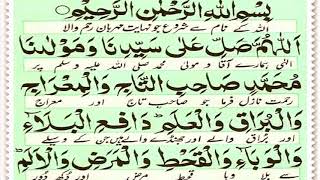 بِسْمِ اللّٰهِ الرَّحْمٰنِ الرَّحِیْمِ
اللہ کے نام سے شروع جو نہایت مہربان رحم والا
اَللّٰهُمَّ صَلِّ عَلٰی سَیِّدِنَا وَمَوْلٰنَا
الٰہی ہمارے آقا و مولیٰ محمد صلی اللہ علیہ وسلم پر
مُحَمَّدٍ صَاحِبِ التَّاجِ وَالْمِعْرَاجِ
رحمت نازل فرما جو صاحب تاج اور معراج
وَالْبُرَاقِ وَالْعَلَمِ ؕ دَافِعِ الْبَلَآءِ
اور براق والے اور جھنڈے والے ہیں جن کے وسیلے
وَالْوَبَآءِ وَالْقَحْطِ وَالْمَرَضِ وَالْاَلَمِ ؕ
سے بلا وبا قحط مرض اور دکھ دور